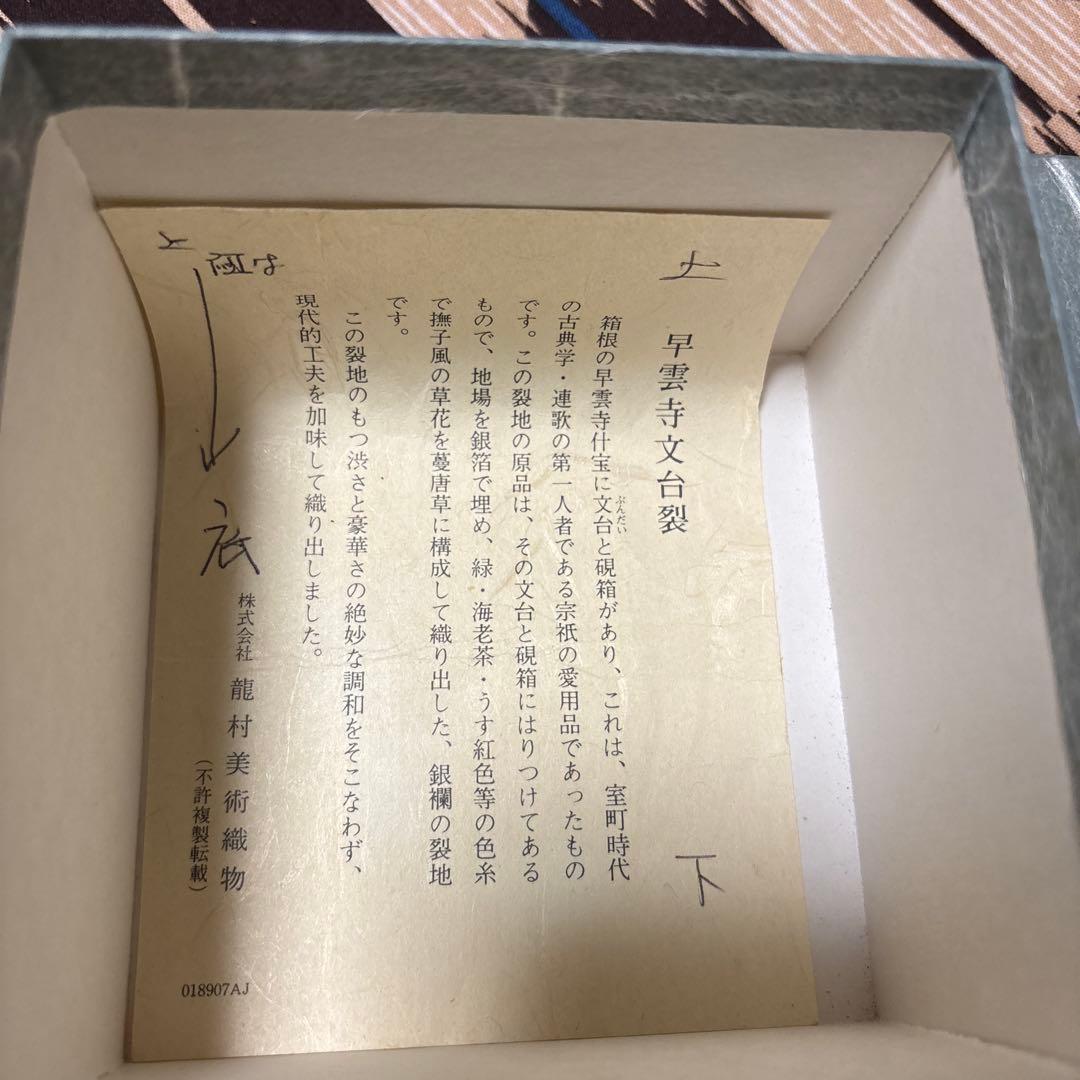 上
早雲寺文台裂
下
箱根の早雲寺什宝に文台と硯箱があり、これは、室町時代
ぶんだい
の古典学・連歌の第一人者である宗祇の愛用品であったもの
です。この裂地の原品は、その文台と硯箱にはりつけてある
もので、地場を銀箔で埋め、緑・海老茶・うす紅色等の色糸
で撫子風の草花を蔓唐草に構成して織り出した、銀襴の裂地
です。
この裂地のもつ渋さと豪華さの絶妙な調和をそこなわず、
現代的工夫を加味して織り出しました。
上
底
株式会社 龍村美術織物
(不許複製転載)
018907AJ